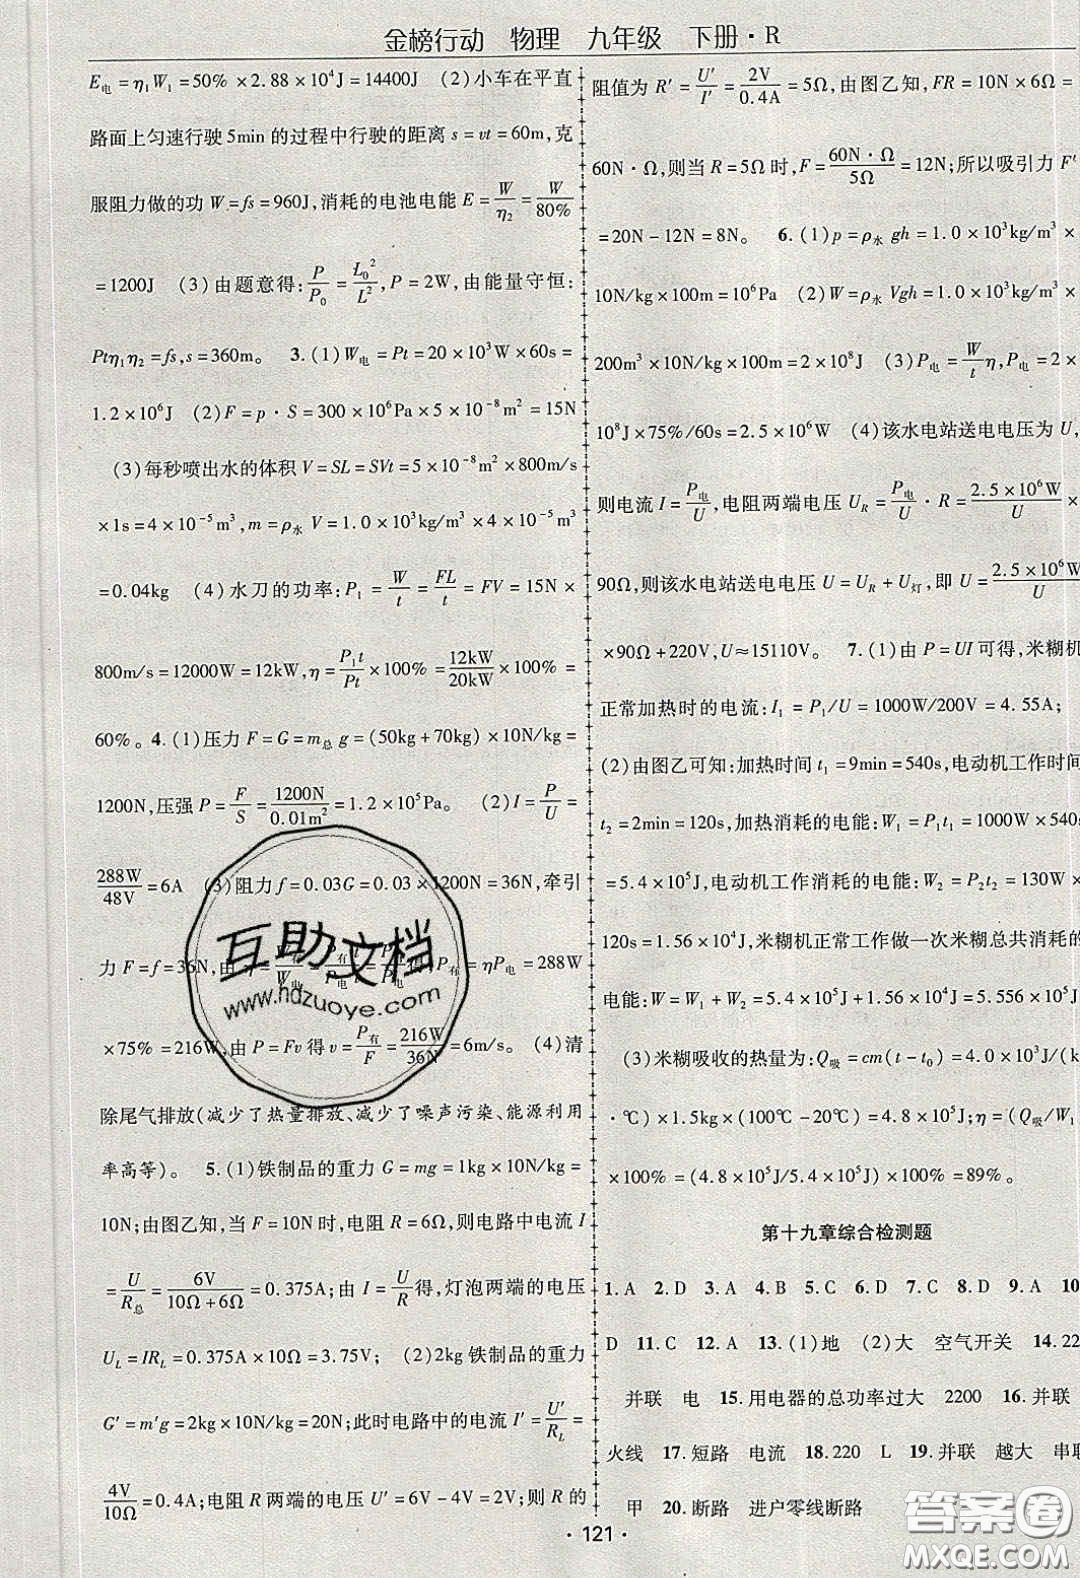 金榜行动 物理 九年级 下册·R
E电=η₁W₁=50%×2.88×10⁴J=14400J (2)小车在平直
路面上匀速行驶5min的过程中行驶的距离s=vt=60m,克
服阻力做的功W=fs=960J,消耗的电池电能E=W/η₂=W/80%
=1200J (3)由题意得:P/P₀=L₀²/L²,P=2W,由能量守恒:
Ptη₁η₂=fs,s=360m。 3.(1)W电=Pt=20×10³W×60s=
1.2×10⁶J (2)F=p·S=300×10⁶Pa×5×10⁻⁸m²=15N
(3)每秒喷出水的体积V=SL=SVt=5×10⁻⁸m²×800m/s
×1s=4×10⁻⁵m³,m=ρ水V=1.0×10³kg/m³×4×10⁻⁵m³
=0.04kg (4)水刀的功率:P₁=W/t=FL/t=FV=15N×
800m/s=12000W=12kW,η=P₁t/Pt×100%=12kW/20kW×100%=
60%。4.(1)压力F=G=m总g=(50kg+70kg)×10N/kg=
1200N,压强P=F/S=1200N/0.01m²=1.2×10⁵Pa。 (2)I=P/U=
288W/48V=6A (3)阻力f=0.03G=0.03×1200N=36N,牵引
力F=f=36N,由η=W有/W电=P有t/P电t=P有/P电得,P有=ηP电=288W
×75%=216W,由P=Fv得v=P有/F=216W/36N=6m/s。 (4)清
除尾气排放(减少了热量排放、减少了噪声污染、能源利用
率高等)。 5.(1)铁制品的重力G=mg=1kg×10N/kg=
10N;由图乙知,当F=10N时,电阻R=6Ω,则电路中电流I
=U/R总=6V/10Ω+6Ω=0.375A;由I=U/R得,灯泡两端的电压
U_L=IR_L=0.375A×10Ω=3.75V; (2)2kg铁制品的重力
G'=m'g=2kg×10N/kg=20N;此时电路中的电流I'=U'/R_L=
4V/10Ω=0.4A;电阻R两端的电压U'=6V-4V=2V;则R的
阻值为R'=U'/I'=2V/0.4A=5Ω,由图乙知,FR=10N×6Ω=
60N·Ω,则当R=5Ω时,F=60N·Ω/5Ω=12N;所以吸引力F'
=20N-12N=8N。 6.(1)p=ρ水gh=1.0×10³kg/m³×
10N/kg×100m=10⁶Pa (2)W=ρ水Vgh=1.0×10³kg/m³×
200m³×10N/kg×100m=2×10⁸J (3)P电=W/tη,P电=2×
10⁸J×75%/60s=2.5×10⁶W (4)该水电站送电电压为U,
则电流I=P电/U,电阻两端电压U_R=P电/U·R=2.5×10⁶W/U×
90Ω,则该水电站送电电压U=U_R+U灯,即U=2.5×10⁶W/U
×90Ω+220V,U≈15110V。 7.(1)由P=UI可得,米糊机
正常加热时的电流:I₁=P₁/U=1000W/200V=4.55A;
(2)由图乙可知:加热时间t₁=9min=540s,电动机工作时间
t₂=2min=120s,加热消耗的电能:W₁=P₁t₁=1000W×540s
=5.4×10⁵J,电动机工作消耗的电能:W₂=P₂t₂=130W×
120s=1.56×10⁴J,米糊机正常工作做一次米糊总共消耗的
电能:W=W₁+W₂=5.4×10⁵J+1.56×10⁴J=5.556×10⁵J
(3)米糊吸收的热量为:Q吸=cm(t-t₀)=4.0×10³J/(k
·℃)×1.5kg×(100℃-20℃)=4.8×10⁵J;η=(Q吸/W₁
×100%=(4.8×10⁵J/5.4×10⁵J)×100%=89%。
第十九章综合检测题
1.A 2.D 3.A 4.B 5.C 6.D 7.C 8.D 9.A 10
D 11.C 12.A 13.(1)地 (2)大 空气开关 14.220
并联 电 15.用电器的总功率过大 2200 16.并联
火线 17.短路 电流 18.220 L 19.并联 越大 串联
甲 20.断路 进户零线断路
·121·
互助文档
www.hdzuoye.com
答案圈
MXQE.COM